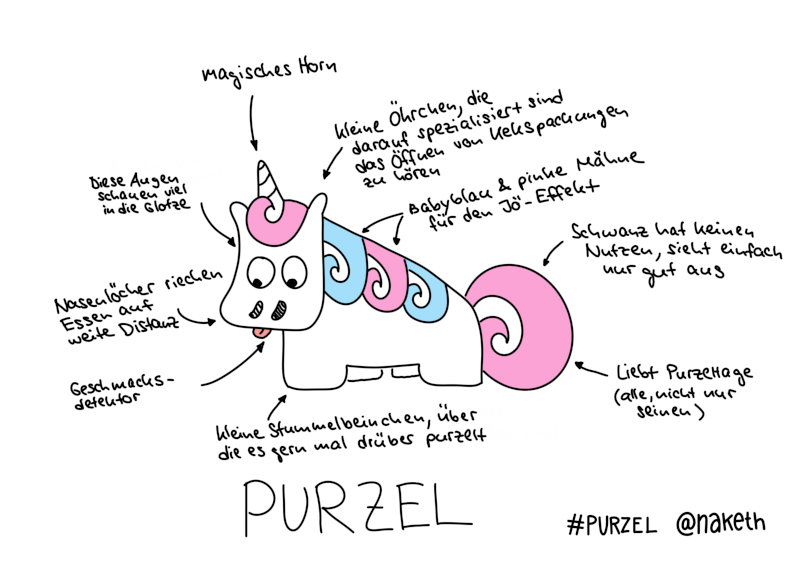 Magisches Horn
kleine Öhrchen, die
darauf spezialisiert sind
das Öffnen von Kekspackungen
zu hören
Diese Augen
schauen viel
in die Glotze
Babyblau & pinke Mähne
für den Jö-Effekt
Schwanz hat keinen
Nutzen, sieht einfach
nur gut aus
Nasenlöcher riechen
Essen auf
weite Distanz
Geschmacks-
detektor
Liebt Purzeltage
(alle, nicht nur
seinen)
kleine Stummelbeinchen, über
die es gern mal drüber purzelt
PURZEL
#PURZEL @naketh